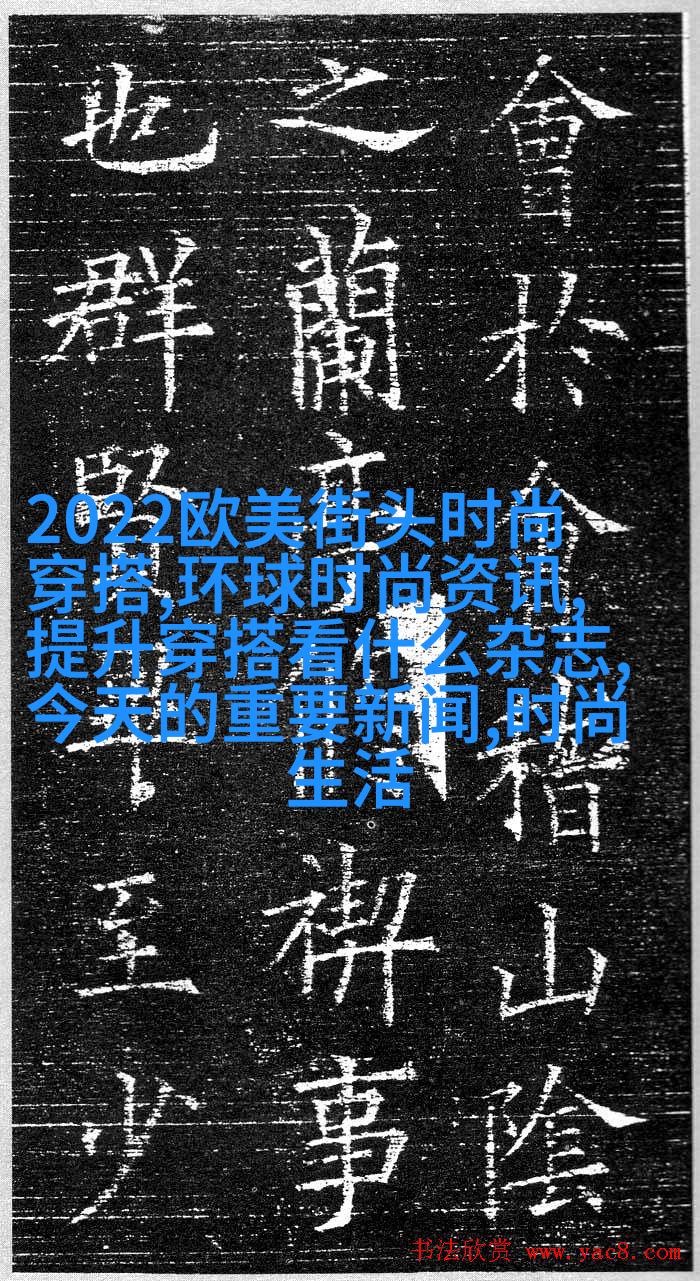 會於會稽山陰
之蘭亭禊事
也群賢畢至少
2022欧美街头时尚
穿搭,环球时尚资讯,
提升穿搭看什么杂志,
今天的重要新闻,时尚
生活
书法欣赏 www.yac8.com